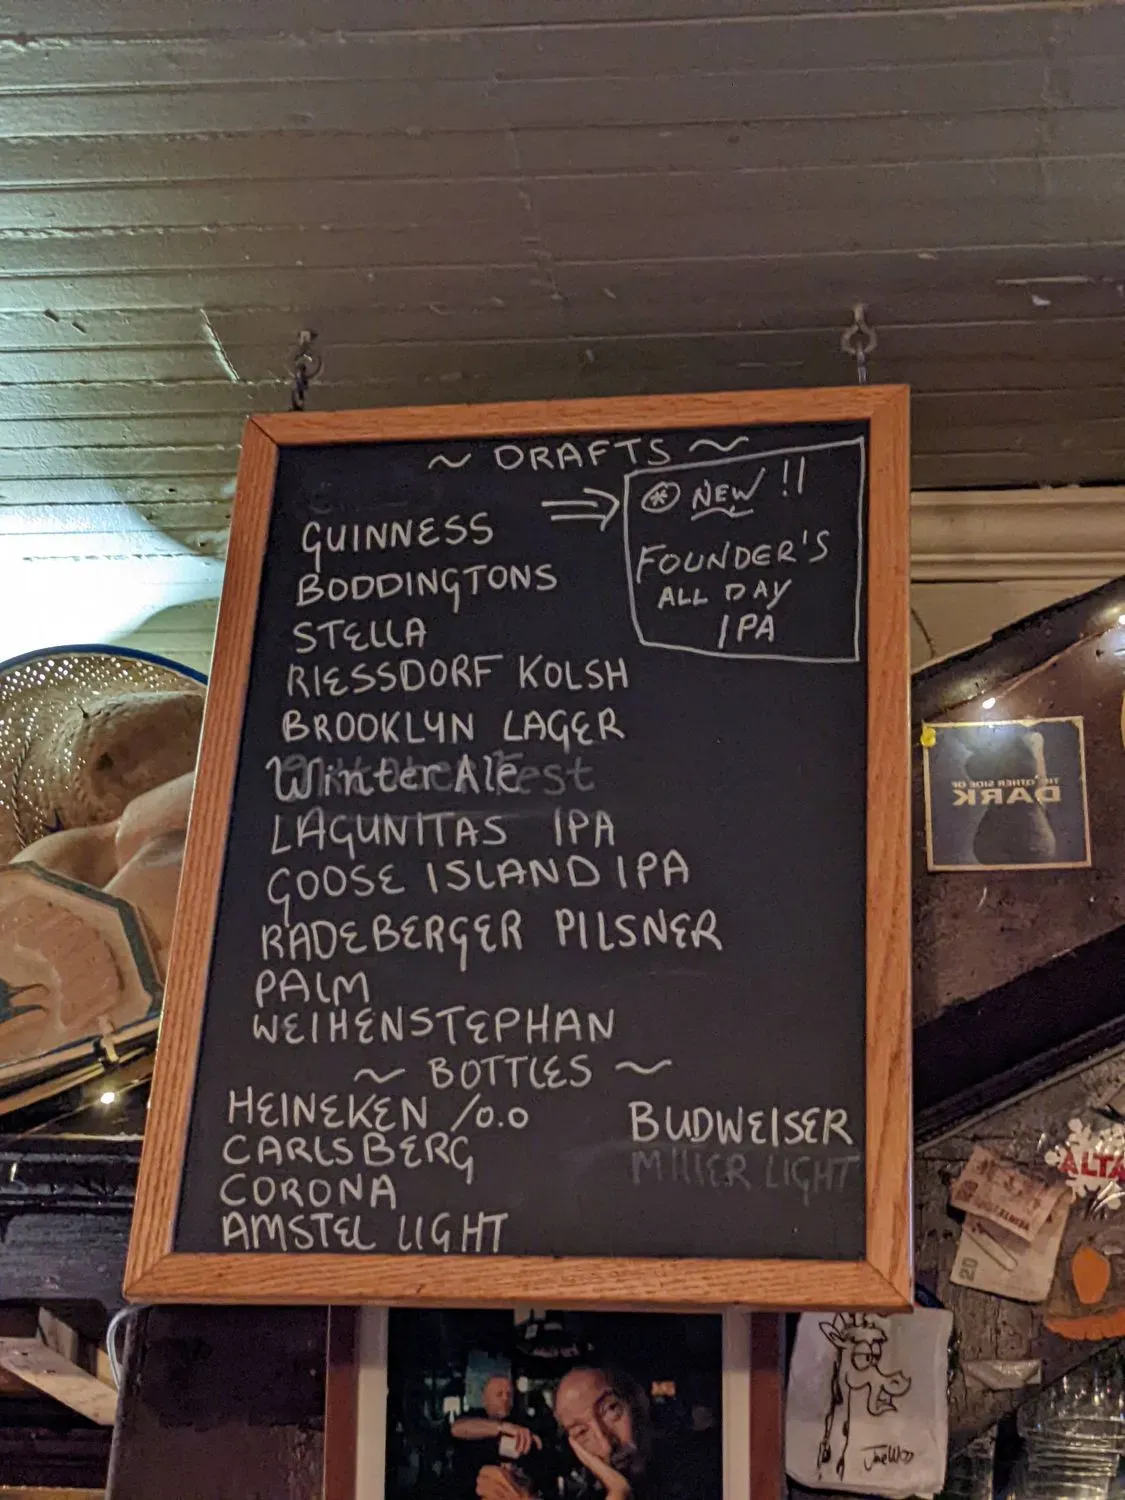 ~ DRAFTS ~
⇒ ⊛ NEW !!
FOUNDER'S
ALL DAY
IPA
GUINNESS
BODDINGTONS
STELLA
RIESSDORF KOLSH
BROOKLYN LAGER
Winter Ale
LAGUNITAS IPA
GOOSE ISLAND IPA
RADEBERGER PILSNER
PALM
WEIHENSTEPHAN
~ BOTTLES ~
HEINEKEN /0.0
CARLSBERG
CORONA
AMSTEL LIGHT
BUDWEISER
MILLER LIGHT
THE OTHER SIDE OF
DARK
ALTA
20